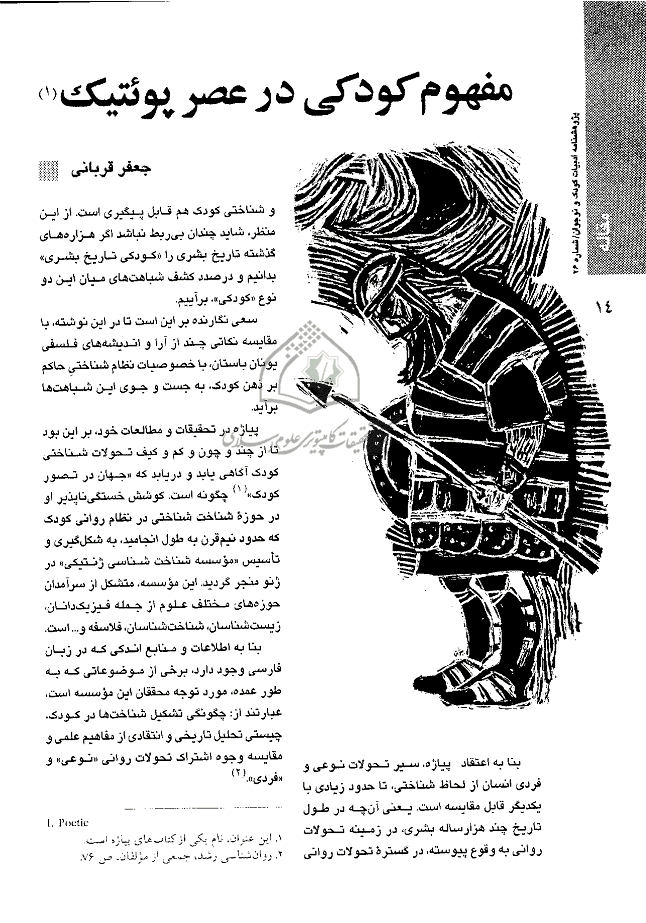 مفهوم کودکی در عصر پوئتیک (۱)
جعفر قربانی
پژوهشنامه ادبیات کودک و نوجوان/شماره ۲۶
مقاله
۱۴
بنا به اعتقاد پیاژه، سیر تحولات نوعی و
فردی انسان از لحاظ شناختی، تا حدود زیادی با
یکدیگر قابل مقایسه است. یعنی آن‌چه در طول
تاریخ چند هزارساله بشری، در زمینه تحولات
روانی به وقوع پیوسته، در گسترهٔ تحولات روانی
و شناختی کودک هم قابل پیگیری است. از این
منظر، شاید چندان بی‌ربط نباشد اگر هزاره‌های
گذشته تاریخ بشری را «کودکی تاریخ بشری»
بدانیم و درصدد کشف شباهت‌های میان این دو
نوع «کودکی»، برآییم.
سعی نگارنده بر این است تا در این نوشته، با
مقایسه نکاتی چند از آرا و اندیشه‌های فلسفی
یونان باستان، با خصوصیات نظام شناختی حاکم
بر ذهن کودک، به جست و جوی این شباهت‌ها
برآید.
پیاژه در تحقیقات و مطالعات خود، بر این بود
تا از چند و چون و کم و کیف تحولات شناختی
کودک آگاهی یابد و دریابد که «جهان در تصور
کودک»(۱) چگونه است. کوشش خستگی‌ناپذیر او
در حوزهٔ شناخت شناختی در نظام روانی کودک
که حدود نیم‌قرن به طول انجامید، به شکل‌گیری و
تأسیس «مؤسسه شناخت شناسی ژنتیکی» در
ژنو منجر گردید. این مؤسسه، متشکل از سرآمدان
حوزه‌های مختلف علوم از جمله فیزیک‌دانان،
زیست‌شناسان، شناخت‌شناسان، فلاسفه و... است.
بنا به اطلاعات و منابع اندکی که در زبان
فارسی وجود دارد، برخی از موضوعاتی که به
طور عمده، مورد توجه محققان این مؤسسه است،
عبارتند از: چگونگی تشکیل شناخت‌ها در کودک،
چیستی تحلیل تاریخی و انتقادی از مفاهیم علمی و
مقایسه وجوه اشتراک تحولات روانی «نوعی» و
«فردی».(۲)
1. Poetic
۱. این عنوان، نام یکی از کتاب‌های پیاژه است.
۲. روان‌شناسی رشد، جمعی از مؤلفان، ص ۷۶.